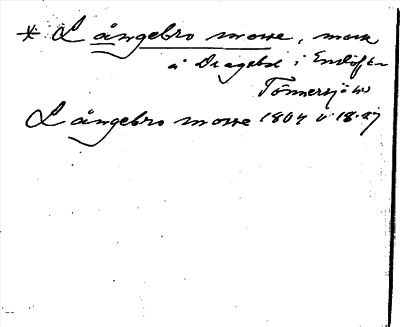 * Långebro mosse, mosse
å Dragebol i Enslöfs sn
Tönnersjö hd
Långebro mosse 1804 v. 18.27